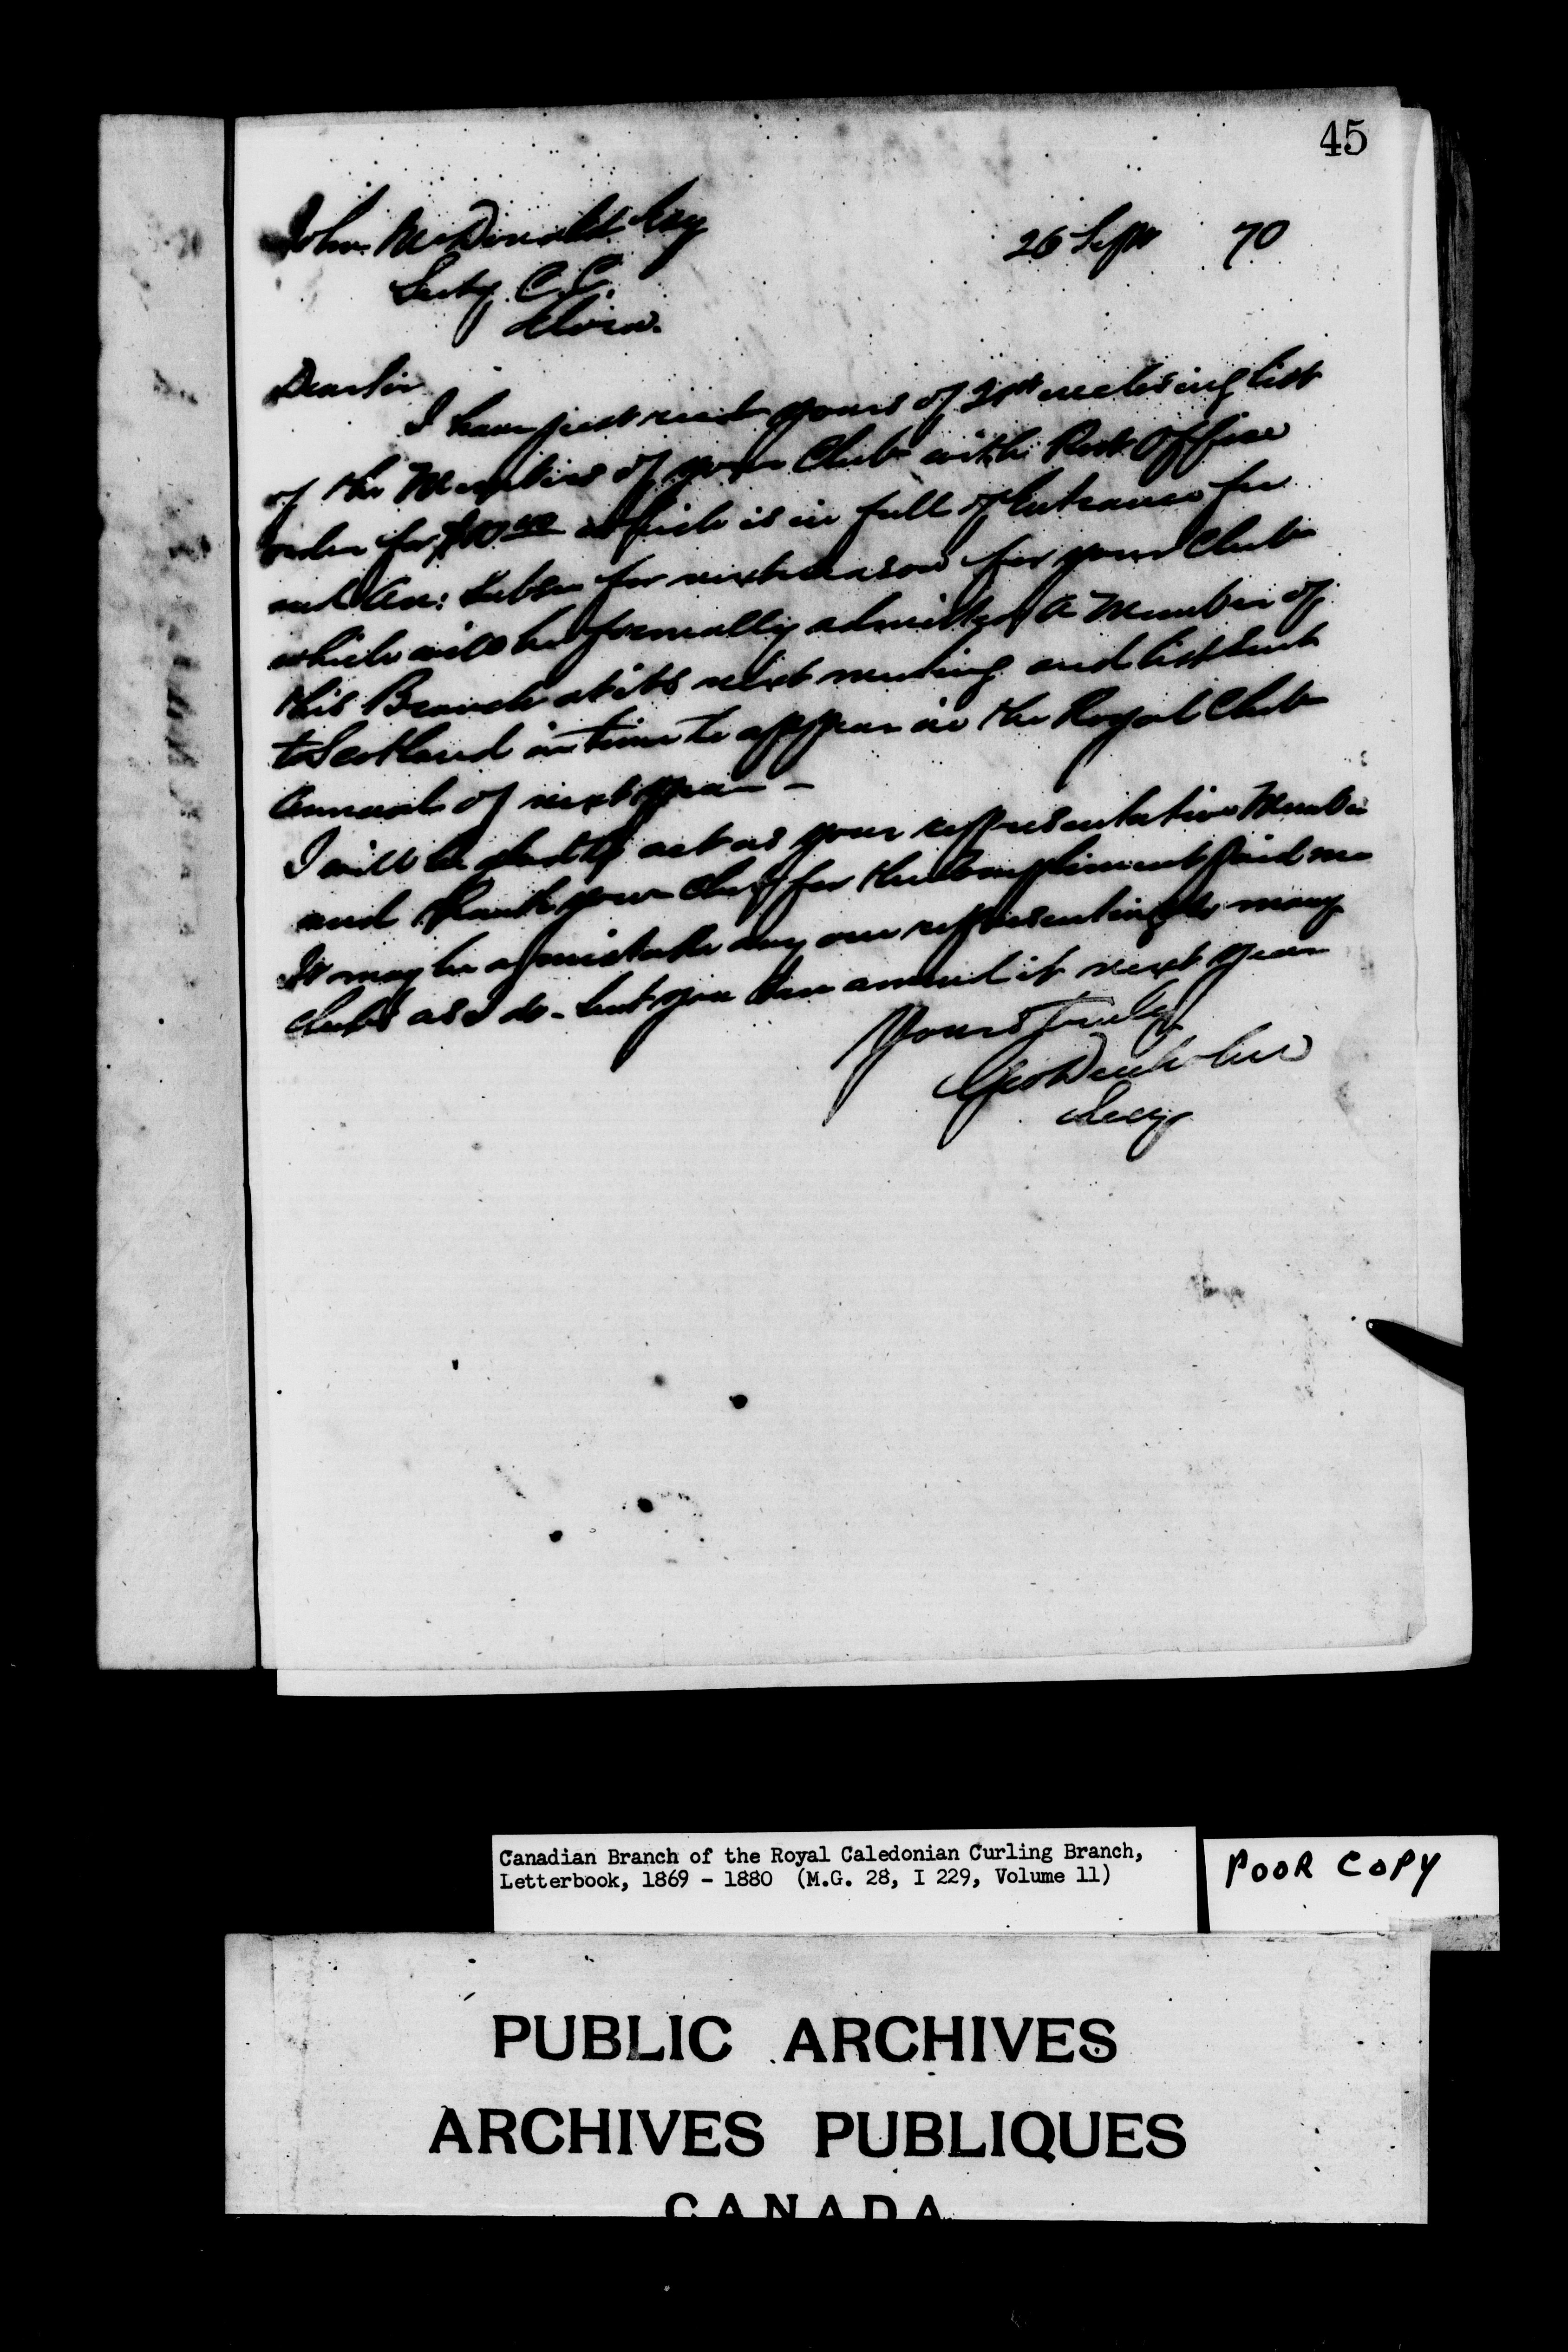 45
John McDonald Esq 26 Sept 70
Secty C.C.
Elora.
Dear Sir
I have just recd yours of 21st enclosing list
of the Members of your Club with Post Office
order for $10.00 which is in full of Entrance fee
and An: Subsn for next season for your Club
which will be formally admitted a Member of
this Branch at its next meeting and list sent
to Scotland in time to appear in the Royal Club
Annual of next year -
I will be glad to act as your representative Member
and thank your Club for the compliment paid me
It may be a mistake any one representing so many
clubs as I do - but you can amend it next year
Yours Truly
Geo Denholm
Secy
Canadian Branch of the Royal Caledonian Curling Branch,
Letterbook, 1869 - 1880 (M.G. 28, I 229, Volume 11)
POOR COPY
PUBLIC ARCHIVES
ARCHIVES PUBLIQUES
CANADA